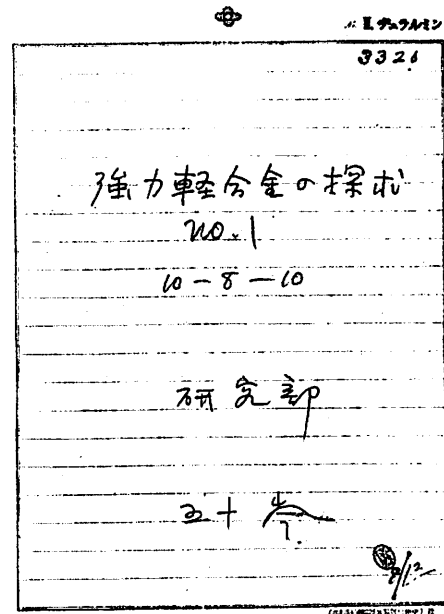 デュラルミン
3326
強力軽合金の探求
no.1
10-8-10
研究部
五十嵐